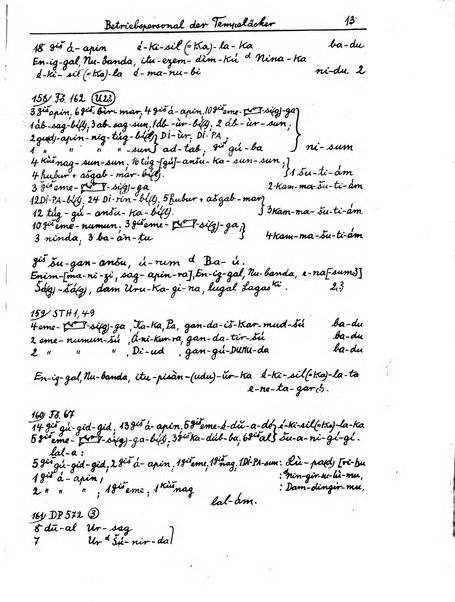 Betriebspersonal der Tempeläcker 13
18 giš á-apin é-ki-sil(=Ka)-la-ka ba-du
En-ig-gal, Nu-banda, itu-ezem-dim-kú d Nina-ka
é-ki-sil(=Ka)-la é-ma-nu-bi ni-du. 2
158/ Fö. 162
3 giš apin, 6 giš bir-mar, 4 giš á-apin, 10 giš eme- -si(g)-ga
1 áb-sag-bi(t), 3 ab-sag-sun, 1 áb-úr-bi(t), 2 áb-úr-sun;
2 -apin-nig-túg-bi(t), DI-ÙR, DI-PA,
1 " " " "-sun ad-tab, giš gú-ba ni-sum
4 kuš nag-sun-sun, 10 túg-[gú]-anšu-ka-sun-sun;
4 ḫubur + ašgab-már-bi(t). 1 šu-ti-ám
3 giš eme- -si(g)-ga 2-kam-ma-šu-ti-ám
12 DI-PA-bi(t), 24 DI-rin-bi(t), 5 ḫubur + ašgab-mar
12 túg-gú-anšu-ka-bi(t). 3 kam-ma-šu-ti-ám
10 giš eme-numun, 3 giš eme- -si(g)-ga,
3 ninda, 3 ba-an-tu 4 kam-ma-šu-ti-ám
giš šu-gan-anšu, ú-rum d Ba-ú.
Enim-[ma-ni-zi, sag-apin-ra], En-ig-gal, Nu-banda, e-na[sum]
Šá(g)-šá(g), dam Uru-ka-gi-na, lugal Lagaš ki. 2,3
159/ STH 1, 49
4 eme- -si(g)-ga, Ka-ka, Pa, gan-da-iš-kar-mud-šú ba-du
2 eme-numun-šú, Á-ni-kur-ra, gan-da-tir-šú ba-du
2 " " Di-ud, gan-gú-DUMU-da ba-du
En-ig-gal, Nu-banda, itu-pisàn-(udu)-úr-ka é-ki-sil(=Ka)-la-ta
e-ne-ta-gar
160/ Fö. 67
14 giš gú-gid-gid, 13 giš á-apin, 5 giš eme-é-dù-a-dè é-ki-sil(=Ka)-la-ka
5 giš eme- -si(g)-ga-bi(t), 3 giš ka-dúb-ba, 6 giš al šu-a-ni-gi-gi.
lal-a:
5 giš gú-gid-gid, 2 giš á-apin, 1 giš eme, 1 giš nag, 1 DI-PA-sun: Lù-pa(d) [ri-bu
1 giš á-apin, : Nin-gir-su-bi-mu,
2 " " "; 1 giš eme; 1 kuš nag : Dam-dingir-mu,
lal-ám.
161/ DP 572 3
8 dù-al Ur-sag
7 Ur d Šú-nir-da